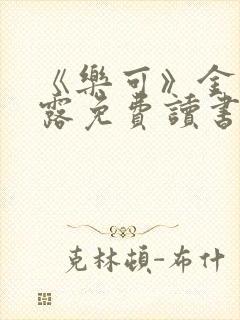 《樂可》金
露免費讀書
克林頓-布什